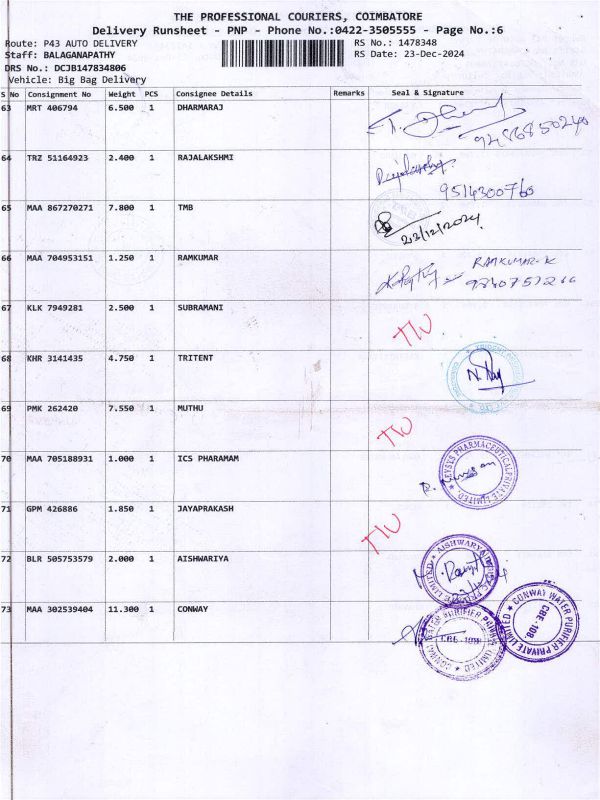 THE PROFESSIONAL COURIERS, COIMBATORE
Delivery Runsheet - PNP - Phone No.:0422-3505555 - Page No.:6
Route: P43 AUTO DELIVERY RS No.: 1478348
Staff: BALAGANAPATHY RS Date: 23-Dec-2024
DRS No.: DCJB147834806
Vehicle: Big Bag Delivery
S No Consignment No Weight PCS Consignee Details Remarks Seal & Signature
63 MRT 406794 6.500 1 DHARMARAJ
64 TRZ 51164923 2.400 1 RAJALAKSHMI
9514300760
65 MAA 867270271 7.800 1 TMB
23/12/2024
66 MAA 704953151 1.250 1 RAMKUMAR RAMKUMAR-K
67 KLK 7949281 2.500 1 SUBRAMANI
68 KHR 3141435 4.750 1 TRITENT
69 PMK 262420 7.550 1 MUTHU
70 MAA 705188931 1.000 1 ICS PHARAMAM
71 GPM 426886 1.850 1 JAYAPRAKASH
72 BLR 505753579 2.000 1 AISHWARIYA
73 MAA 302539404 11.300 1 CONWAY
CONWAY WATER PURIFIER PRIVATE LIMITED
CBE-108